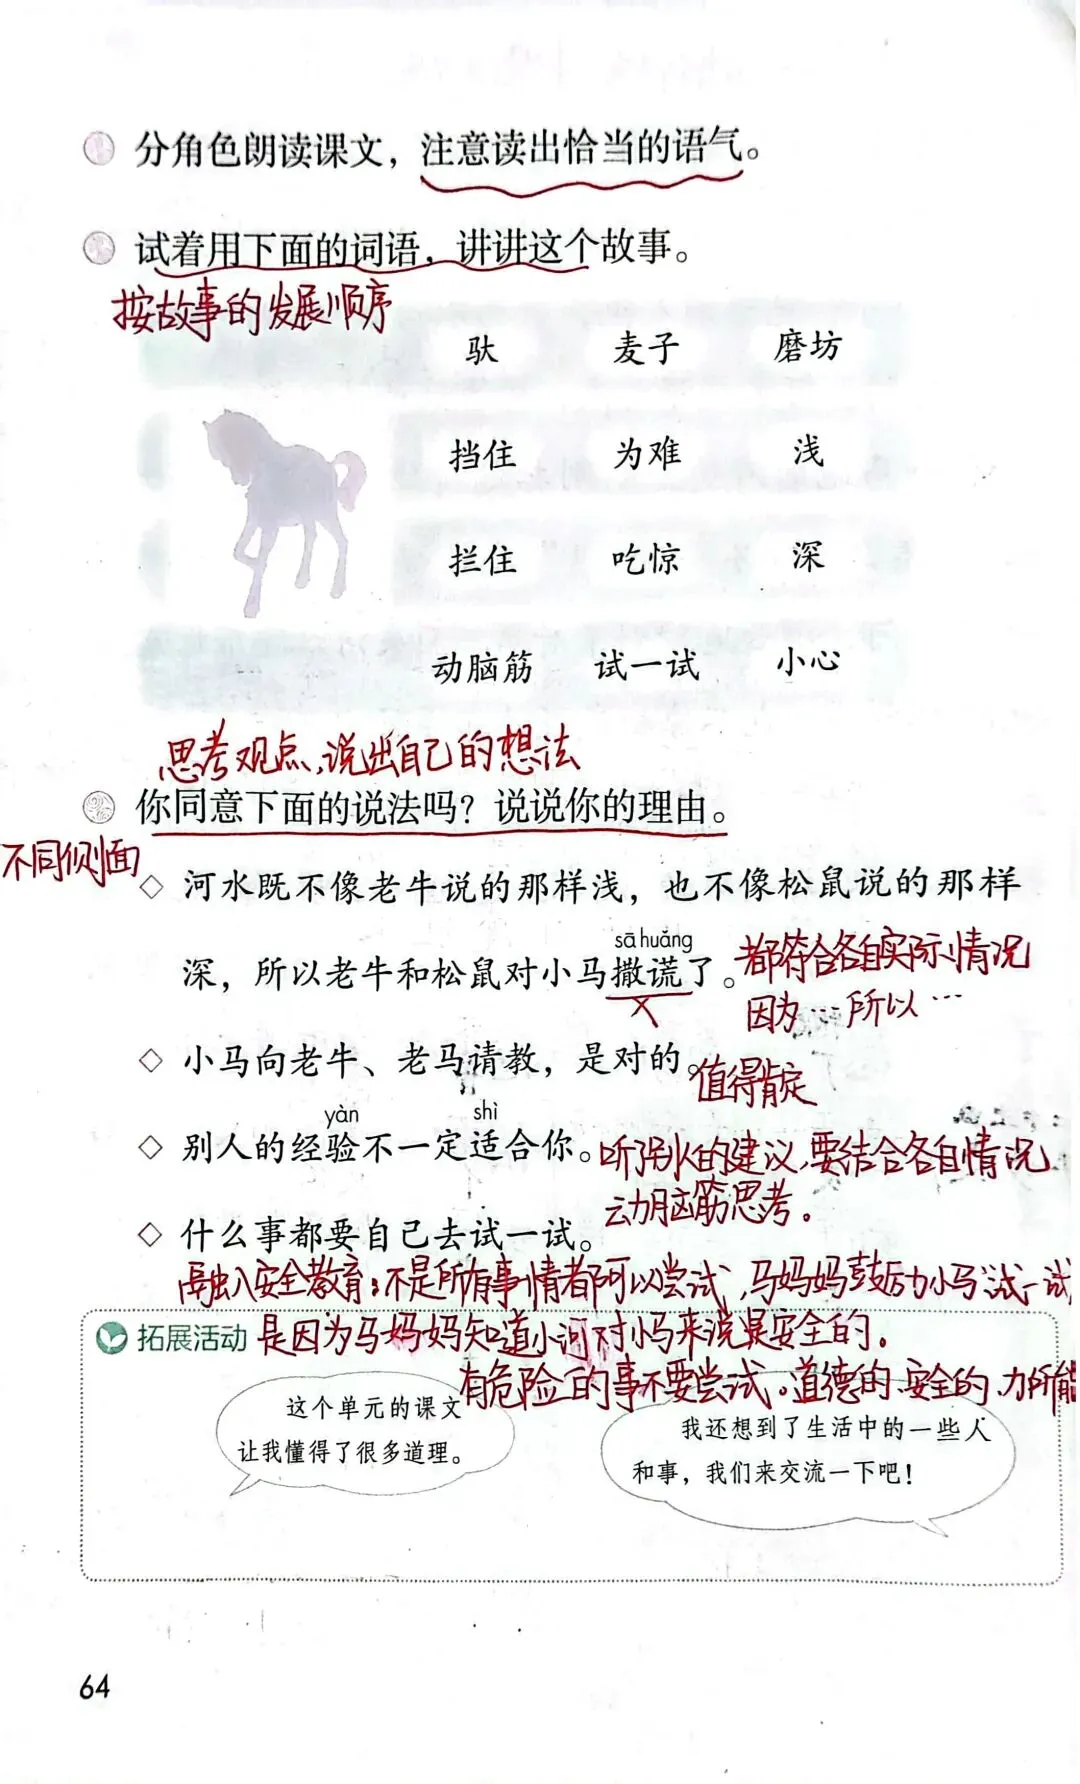 分角色朗读课文，注意读出恰当的语气。
试着用下面的词语，讲讲这个故事。
按故事的发展顺序
驮 麦子 磨坊
挡住 为难 浅
拦住 吃惊 深
动脑筋 试一试 小心
思考观点,说出自己的想法
你同意下面的说法吗？说说你的理由。
不同侧面
◇ 河水既不像老牛说的那样浅，也不像松鼠说的那样
sā huǎng
深，所以老牛和松鼠对小马撒谎了。都符合各自实际情况
因为…所以…
◇ 小马向老牛、老马请教，是对的。值得肯定
yàn shì
◇ 别人的经验不一定适合你。听别人的建议,要结合各自情况
动脑筋思考。
◇ 什么事都要自己去试一试。
融入安全教育:不是所有事情都可以尝试,马妈妈鼓励小马试一试
拓展活动 是因为马妈妈知道小河对小马来说是安全的.
有危险的事不要尝试。道德的.安全的.力所能
这个单元的课文
让我懂得了很多道理。
我还想到了生活中的一些人
和事，我们来交流一下吧！
64